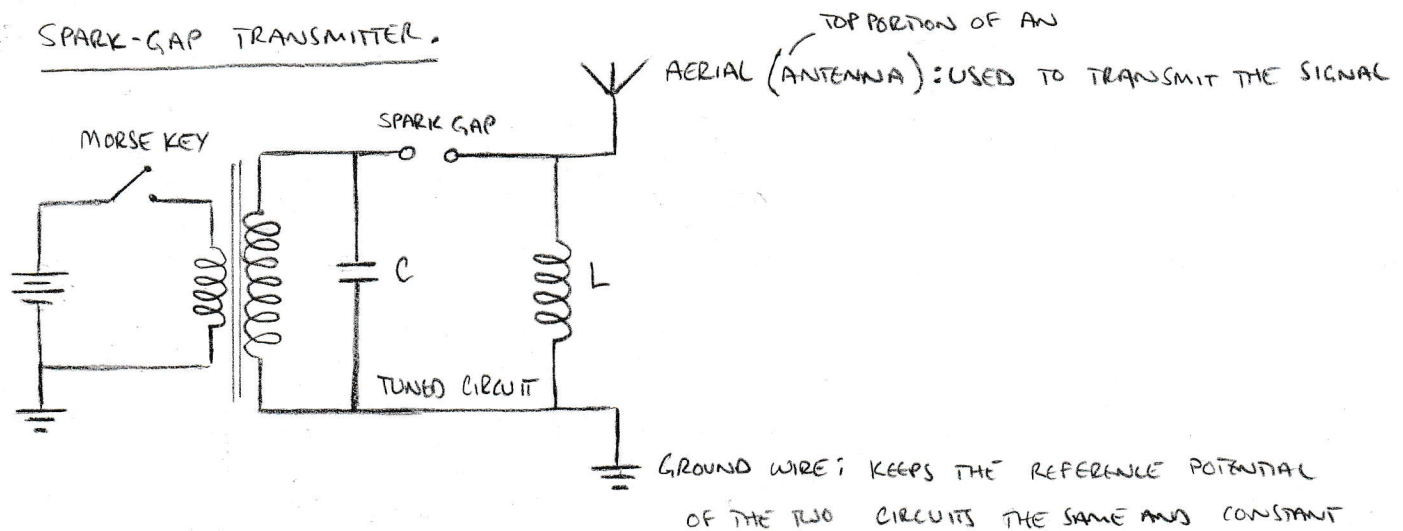 SPARK-GAP TRANSMITTER.
TOP PORTION OF AN
AERIAL (ANTENNA): USED TO TRANSMIT THE SIGNAL
SPARK GAP
MORSE KEY
C
L
TUNED CIRCUIT
GROUND WIRE: KEEPS THE REFERENCE POTENTIAL
OF THE TWO CIRCUITS THE SAME AND CONSTANT